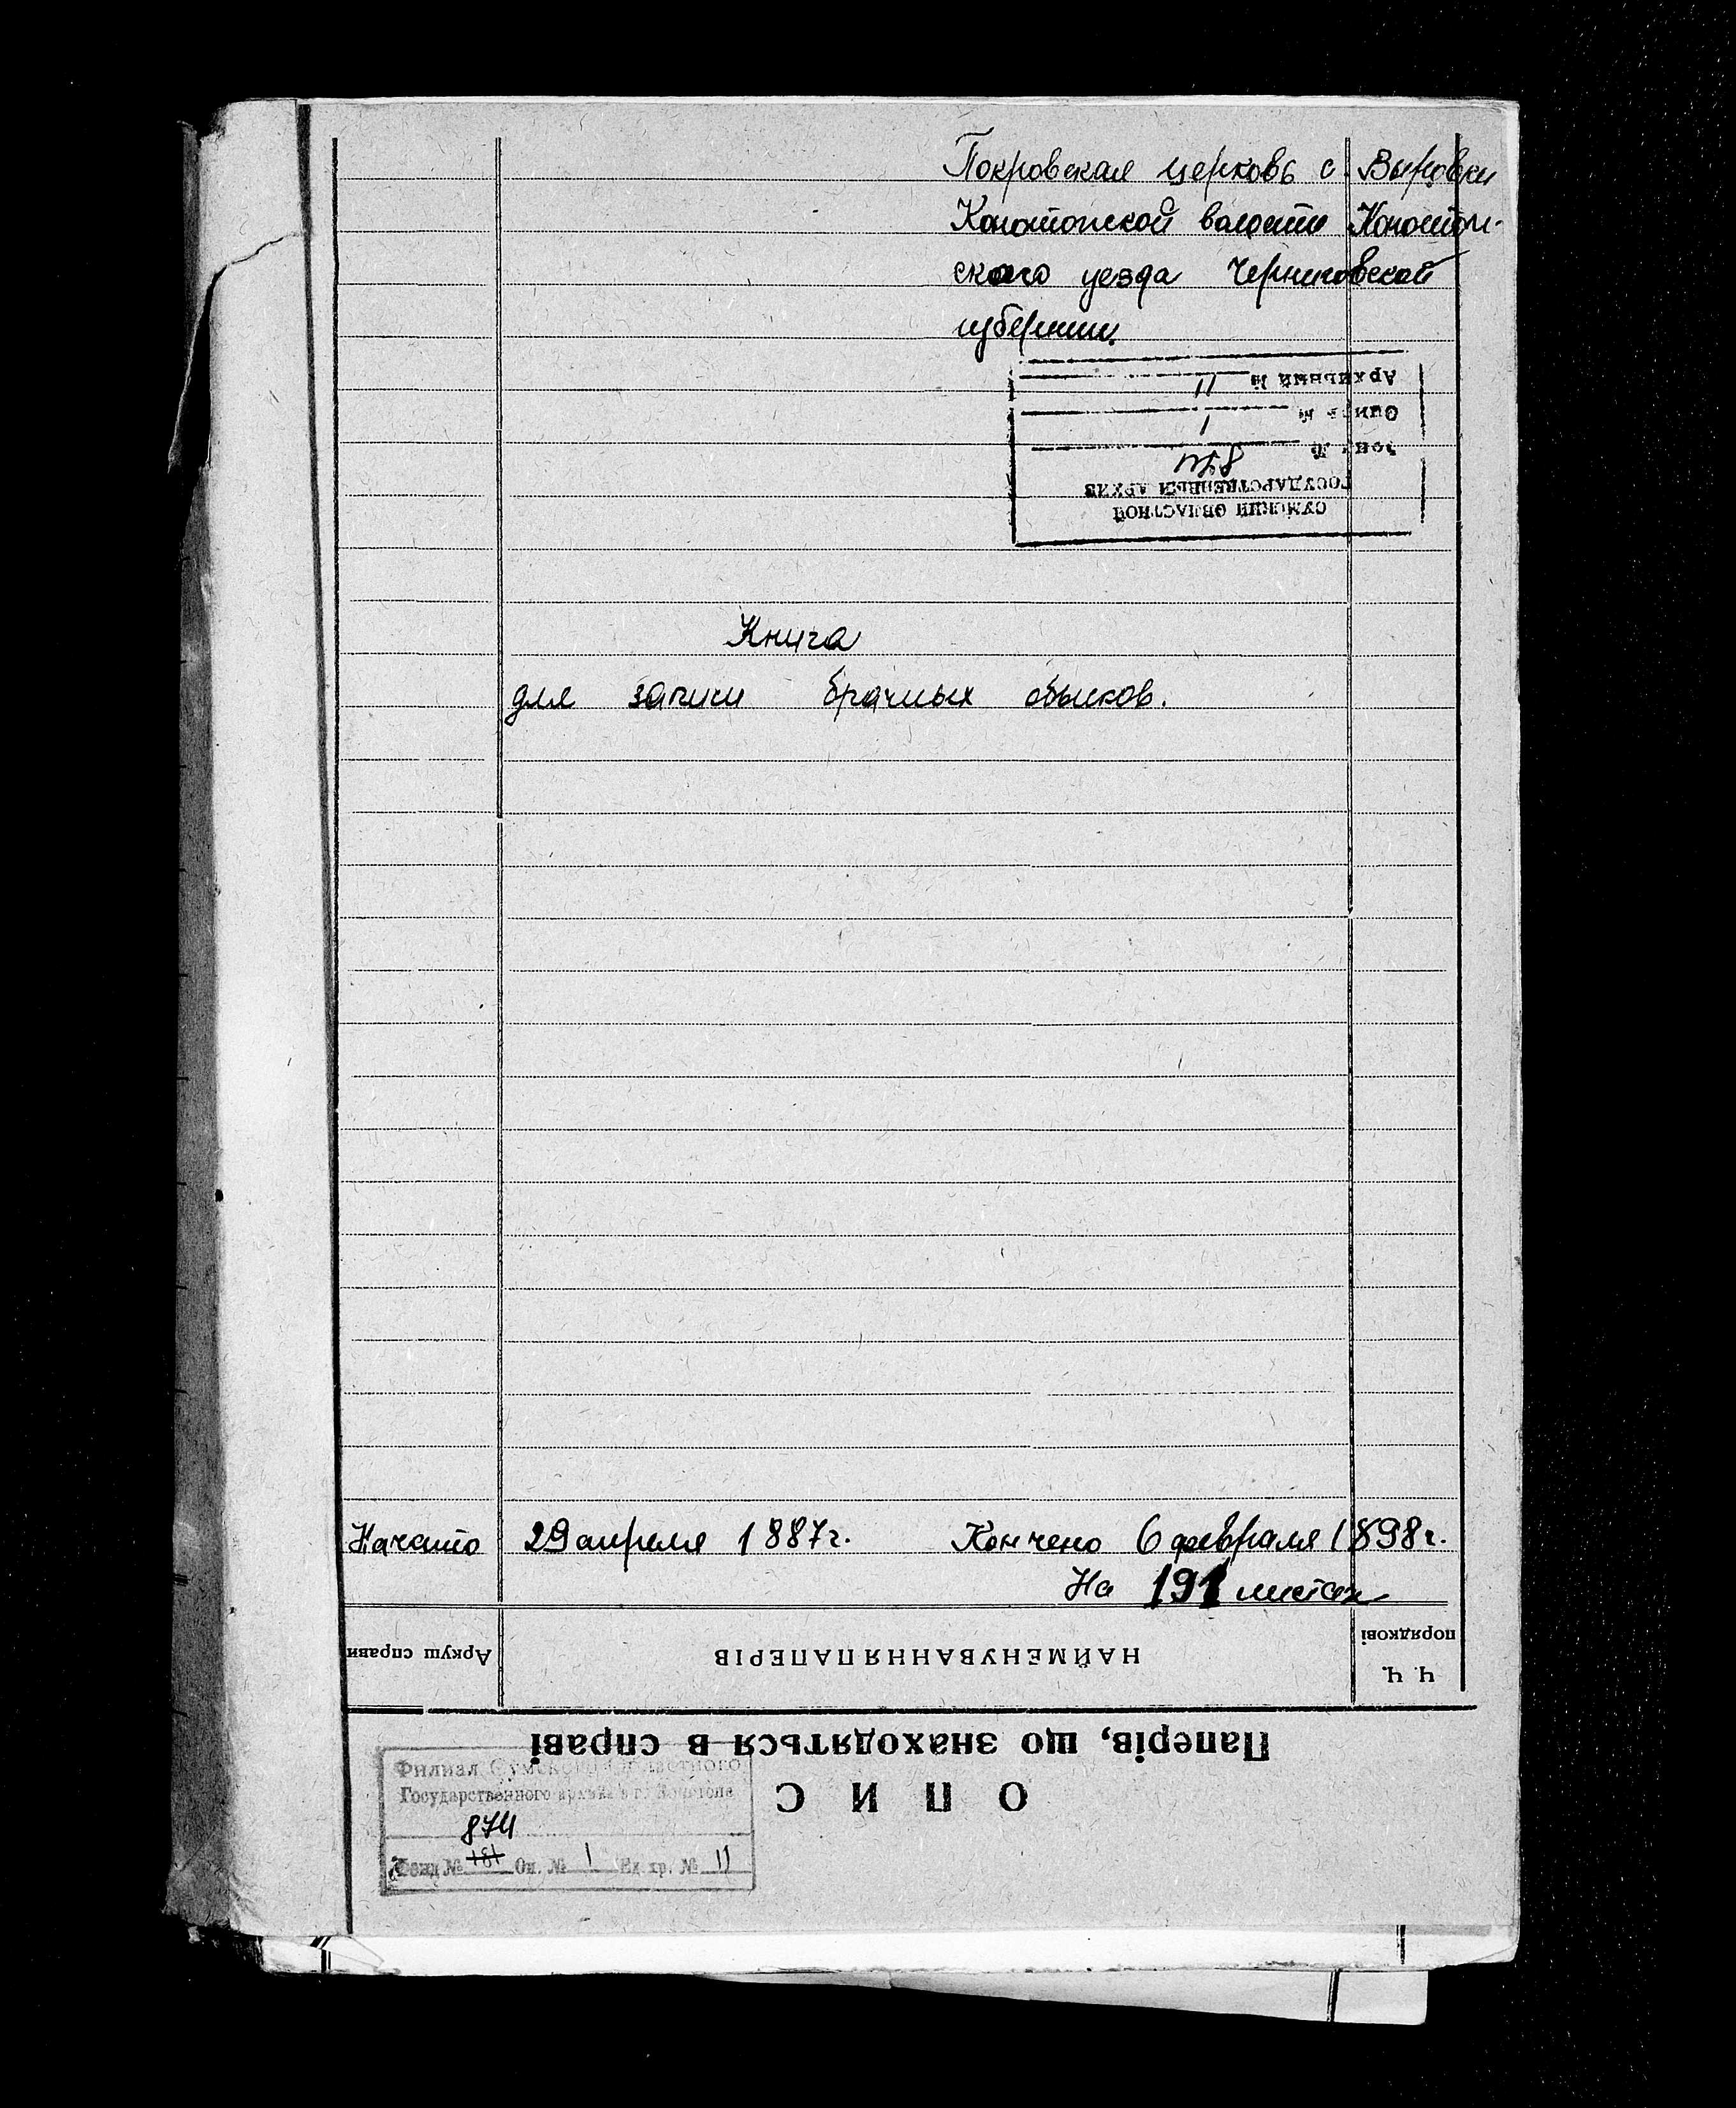 Покровская церковь с. Выровки
Конотопской волости Конотоп-
ского уезда Черниговской
губернии.
Архивный № 11
Опись № 1
Фонд № 874
ГОСУДАРСТВЕННЫЙ АРХИВ
СУМСКИЙ ОБЛАСТНОЙ
Книга
для записи брачных обысков.
Начато 29 апреля 1887г. Кончено 6 февраля 1898г.
На 191 листах
Аркуш справи НАЙМЕНУВАННЯ ПАПЕРІВ Ч. Ч. порядкові
Паперів, що знаходяться в справі
ОПИС
Филиал Сумского областного
Государственного архива в г. Конотопе
874
Фонд № 181 Оп. № 1 Ед. хр. № 11